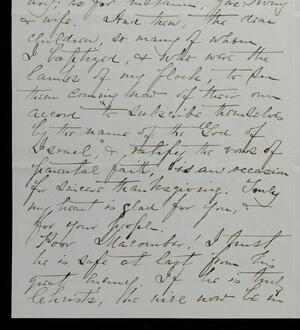 as for instance, Jas. Irving
& wife. And then, the dear
children, so many of whom
I baptized, & who were the
lambs of my flock, to see
them coming now of their own
accord "to subscribe themselves
by the name of the God of
Israel," & ratify the vows of
parental faith, is an occasion
for sincere thanksgiving. Truly
my heart is glad for you, &
for your people.
Poor Macomber! I trust
he is safe at last from his
great enemy. If he is truly
Christs, he will now be in